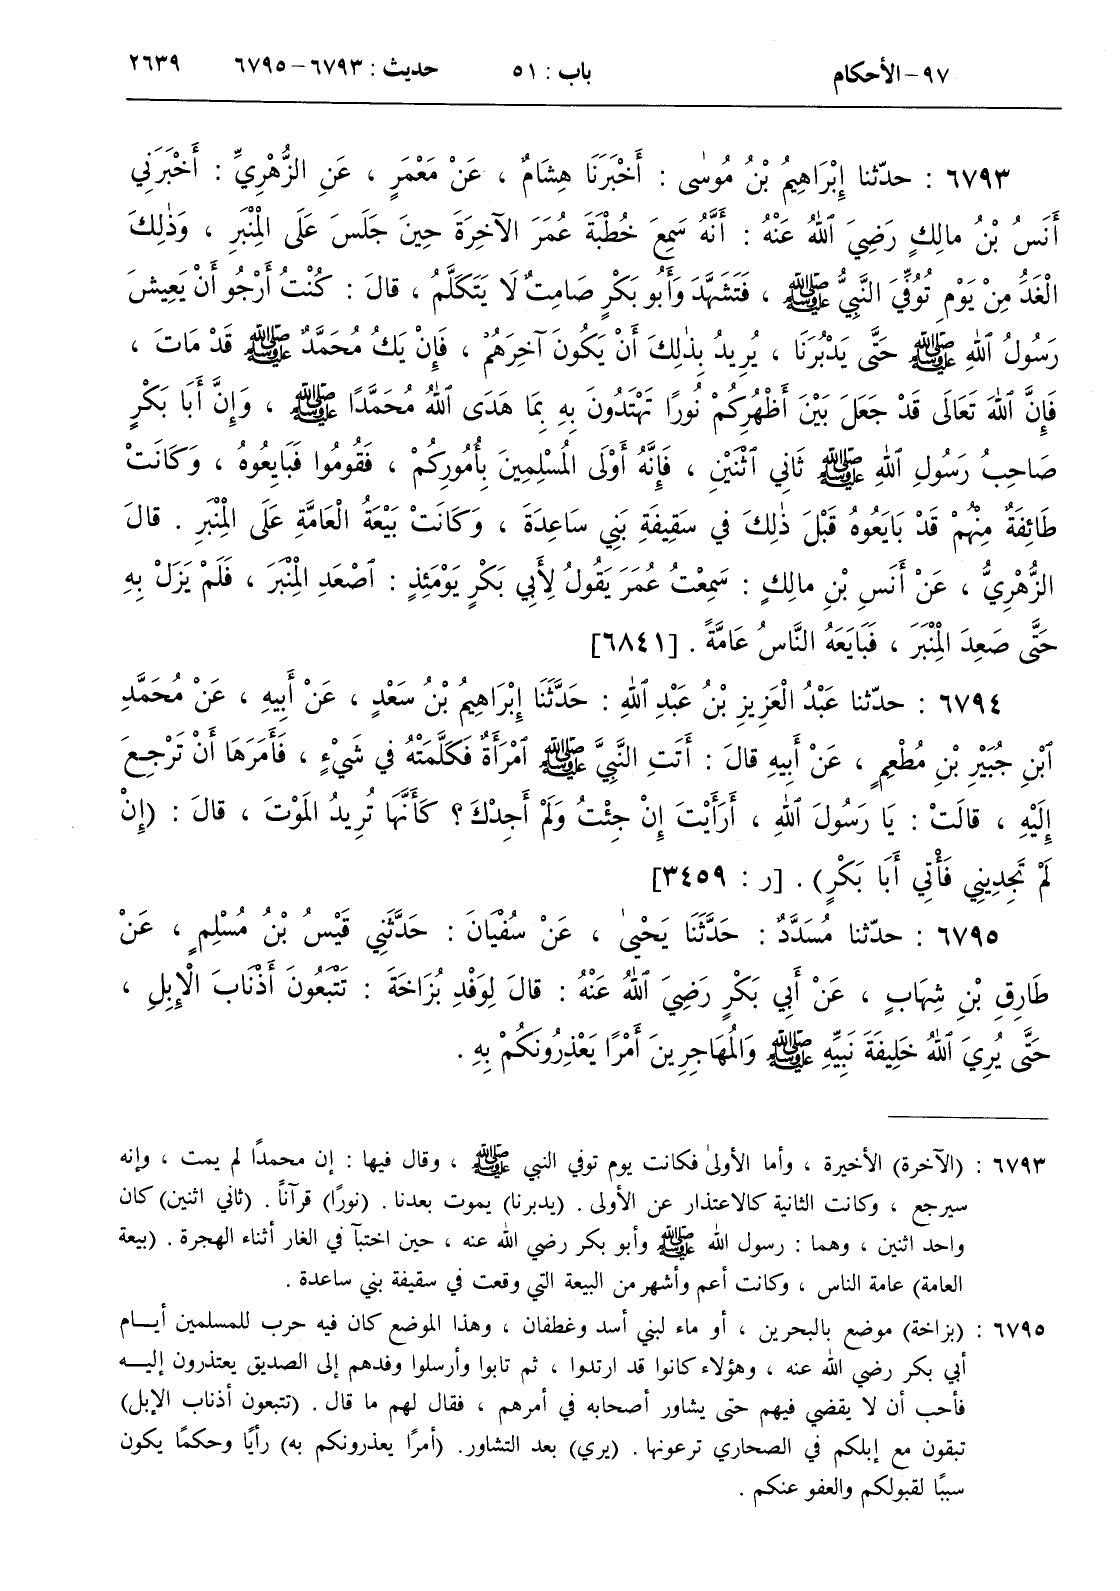 ٩٧ - الأحكام باب : ٥١ حديث : ٦٧٩٣ - ٦٧٩٥ ٢٦٣٩
٦٧٩٣ : حدّثنا إِبْرَاهِيمُ بْنُ مُوسٰى : أَخْبَرَنَا هِشَامٌ ، عَنْ مَعْمَرٍ ، عَنِ الزُّهْرِيِّ : أَخْبَرَنِي
أَنَسُ بْنُ مالِكٍ رَضِيَ ٱللهُ عَنْهُ : أَنَّهُ سَمِعَ خُطْبَةَ عُمَرَ الآخِرَةَ حِينَ جَلَسَ عَلَى الْمِنْبَرِ ، وَذٰلِكَ
الْغَدُ مِنْ يَوْمِ تُوُفِّيَ النَّبِيُّ ﷺ ، فَتَشَهَّدَ وَأَبُو بَكْرٍ صَامِتٌ لَا يَتَكَلَّمُ ، قالَ : كُنْتُ أَرْجُو أَنْ يَعِيشَ
رَسُولُ ٱللهِ ﷺ حَتَّى يَدْبُرَنَا ، يُرِيدُ بِذٰلِكَ أَنْ يَكُونَ آخِرَهُمْ ، فَإِنْ يَكُ مُحَمَّدٌ ﷺ قَدْ مَاتَ ،
فَإِنَّ ٱللهَ تَعَالَى قَدْ جَعَلَ بَيْنَ أَظْهُرِكُمْ نُورًا تَهْتَدُونَ بِهِ بِمَا هَدَى ٱللهُ مُحَمَّدًا ﷺ ، وَإِنَّ أَبَا بَكْرٍ
صَاحِبُ رَسُولِ ٱللهِ ﷺ ثَانِي ٱثْنَيْنِ ، فَإِنَّهُ أَوْلَى الْمُسْلِمِينَ بِأُمُورِكُمْ ، فَقُومُوا فَبَايِعُوهُ ، وَكَانَتْ
طَائِفَةٌ مِنْهُمْ قَدْ بَايَعُوهُ قَبْلَ ذٰلِكَ في سَقِيفَةِ بَنِي سَاعِدَةَ ، وَكَانَتْ بَيْعَةُ الْعَامَّةِ عَلَى الْمِنْبَرِ . قالَ
الزُّهْرِيُّ ، عَنْ أَنَسِ بْنِ مالِكٍ : سَمِعْتُ عُمَرَ يَقُولُ لِأَبِي بَكْرٍ يَوْمَئِذٍ : ٱصْعَدِ الْمِنْبَرَ ، فَلَمْ يَزَلْ بِهِ
حَتَّى صَعِدَ الْمِنْبَرَ ، فَبَايَعَهُ النَّاسُ عَامَّةً . [٦٨٤١]
٦٧٩٤ : حدّثنا عَبْدُ الْعَزِيزِ بْنُ عَبْدِ ٱللهِ : حَدَّثَنَا إِبْرَاهِيمُ بْنُ سَعْدٍ ، عَنْ أَبِيهِ ، عَنْ مُحَمَّدِ
ٱبْنِ جُبَيْرِ بْنِ مُطْعِمٍ ، عَنْ أَبِيهِ قالَ : أَتَتِ النَّبِيَّ ﷺ ٱمْرَأَةٌ فَكَلَّمَتْهُ في شَيْءٍ ، فَأَمَرَهَا أَنْ تَرْجِعَ
إِلَيْهِ ، قالَتْ : يَا رَسُولَ ٱللهِ ، أَرَأَيْتَ إِنْ جِئْتُ وَلَمْ أَجِدْكَ ؟ كَأَنَّهَا تُرِيدُ المَوْتَ ، قالَ : (إِنْ
لَمْ تَجِدِينِي فَأْتِي أَبَا بَكْرٍ) . [ر : ٣٤٥٩]
٦٧٩٥ : حدّثنا مُسَدَّدٌ : حَدَّثَنَا يَحْيىٰ ، عَنْ سُفْيَانَ : حَدَّثَنِي قَيْسُ بْنُ مُسْلِمٍ ، عَنْ
طَارِقِ بْنِ شِهَابٍ ، عَنْ أَبِي بَكْرٍ رَضِيَ ٱللهُ عَنْهُ : قالَ لِوَفْدِ بُزَاخَةَ : تَتْبَعُونَ أَذْنَابَ الْإِبِلِ ،
حَتَّى يُرِيَ ٱللهُ خَلِيفَةَ نَبِيِّهِ ﷺ وَالْمُهَاجِرِينَ أَمْرًا يَعْذِرُونَكُمْ بِهِ .
٦٧٩٣ : (الآخرة) الأخيرة ، وأما الأولىٰ فكانت يوم توفي النبي ﷺ ، وقال فيها : إن محمداً لم يمت ، وإنه
سيرجع ، وكانت الثانية كالاعتذار عن الأولى . (يدبرنا) يموت بعدنا . (نورًا) قرآناً . (ثاني اثنين) كان
واحد اثنين ، وهما : رسول الله ﷺ وأبو بكر رضي الله عنه ، حين اختبآ في الغار أثناء الهجرة . (بيعة
العامة) عامة الناس ، وكانت أعم وأشهر من البيعة التي وقعت في سقيفة بني ساعدة .
٦٧٩٥ : (بزاخة) موضع بالبحرين ، أو ماء لبني أسد وغطفان ، وهذا الموضع كان فيه حرب للمسلمين أيـام
أبي بكر رضي الله عنه ، وهؤلاء كانوا قد ارتدوا ، ثم تابوا وأرسلوا وفدهم إلى الصديق يعتذرون إليـه
فأحب أن لا يقضي فيهم حتى يشاور أصحابه في أمرهم ، فقال لهم ما قال . (تتبعون أذناب الإبل)
تبقون مع إبلكم في الصحاري ترعونها . (يري) بعد التشاور. (أمرًا يعذرونكم به) رأيًا وحكمًا يكون
سببًا لقبولكم والعفو عنكم .